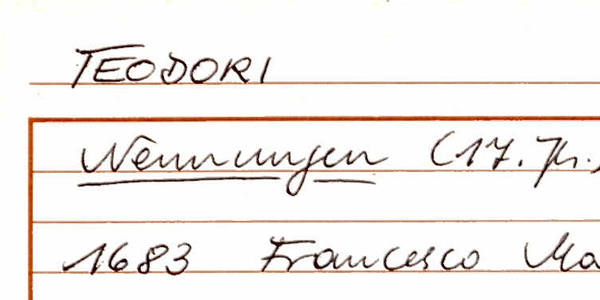 TEODORI
Nennungen (17. Jh.)
1683 Francesco Ma